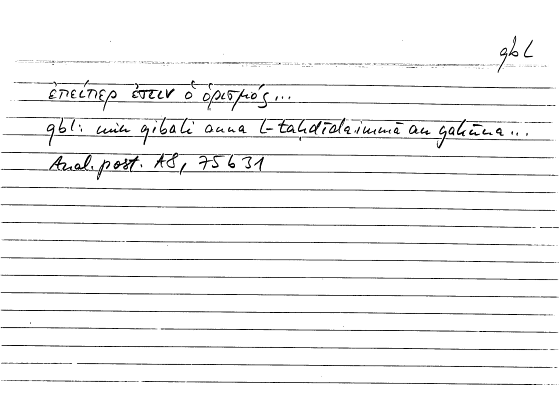 qbl
ἐπείπερ ἐστιν ὁ ὁρισμός...
qbl: min qibali anna l-taḥdīda immā an yakūna...
Anal. post. A8, 75b31